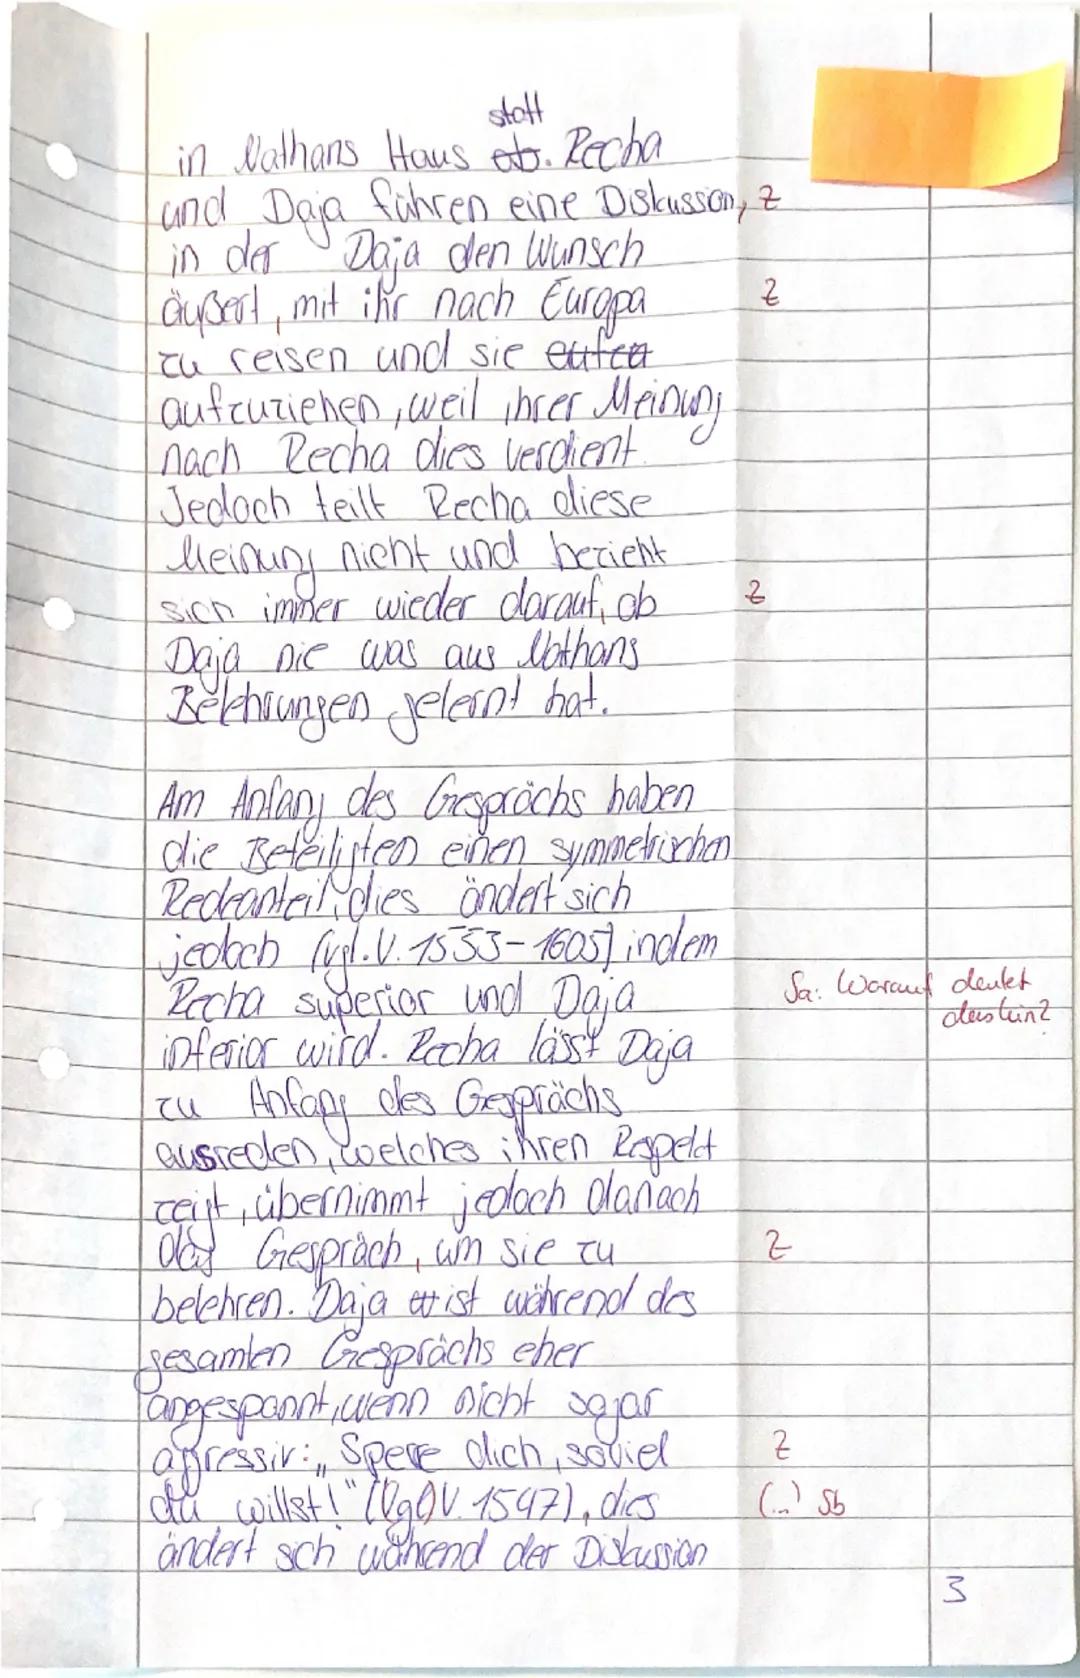 statt
in Nathans Haus ab. Recha
und Daja führen eine Diskussion, Z
in der Daja den Wunsch
äußert, mit ihr nach Europa Z
zu reisen und sie
aufzuziehen, weil ihrer Meinung
nach Recha dies verdient.
Jedoch teilt Recha diese
Meinung nicht und bezieht
sich immer wieder darauf, ob Z
Daja nie was aus Nathans
Belehrungen gelernt hat.
Am Anfang des Gesprächs haben
die Beteiligten einen symmetrischen
Redeanteil, dies ändert sich
jedoch (vgl. V. 1553-1605) indem
Recha superior und Daja Sa: Worauf deutet
inferior wird. Recha lässt Daja das hin?
zu Anfang des Gesprächs
ausreden, welches ihren Respekt
zeigt, übernimmt jedoch danach
das Gespräch, um sie zu Z
belehren. Daja ist während des
gesamten Gesprächs eher
angespannt, wenn nicht sogar
agressiv: „Spere dich, soviel Z
du willst!" (Vgl V. 1547), dies (...) Sb
ändert sich während der Diskussion
3